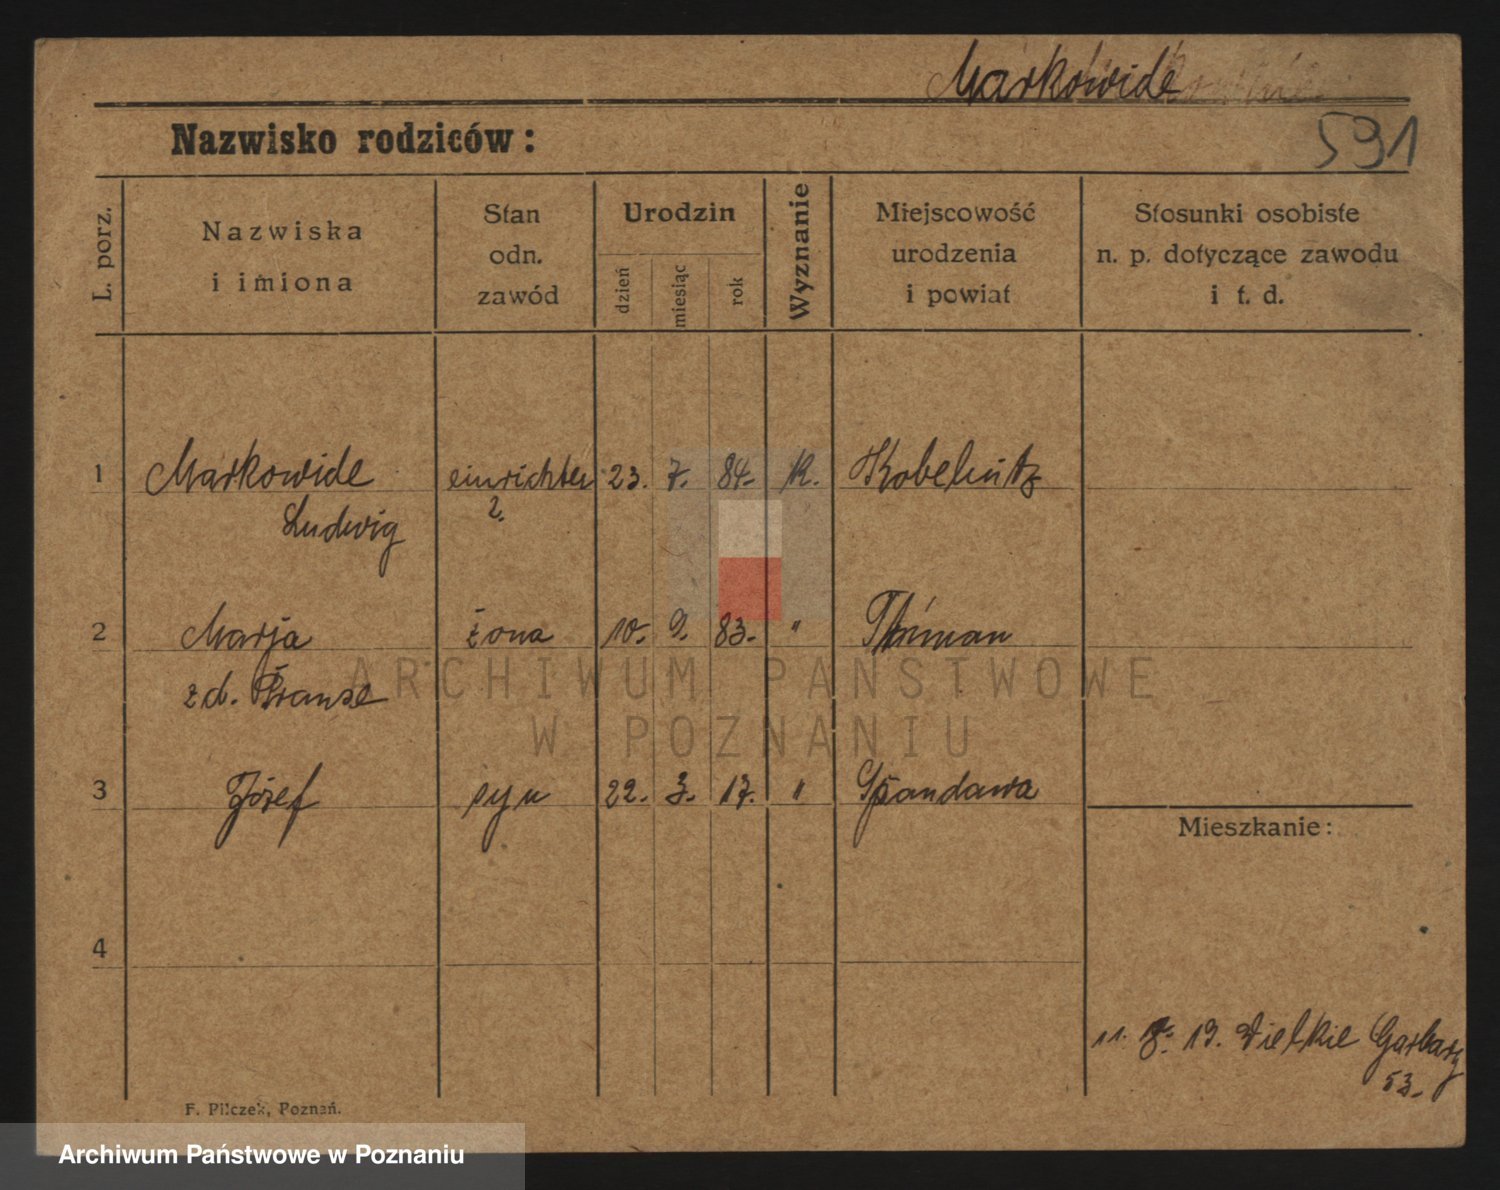 Markowide
Nazwisko rodziców:
591
L. porz.
Nazwiska
i imiona
Stan
odn.
zawód
Urodzin
dzień
miesiąc
rok
Wyznanie
Miejscowość
urodzenia
i powiat
Stosunki osobiste
n. p. dotyczące zawodu
i t. d.
1 Markowide einrichter 23. 7. 84. K. Kobelnitz
Ludwig 2.
2 Marja żona 10. 9. 83. "
zd. Franse
3 Józef syn 22. 3. 17. " Spandawa
Mieszkanie:
4
11. 8. 19. Wielkie Garbary
53.
F. Pilczek, Poznań.
ARCHIWUM PAŃSTWOWE
W POZNANIU
Archiwum Państwowe w Poznaniu